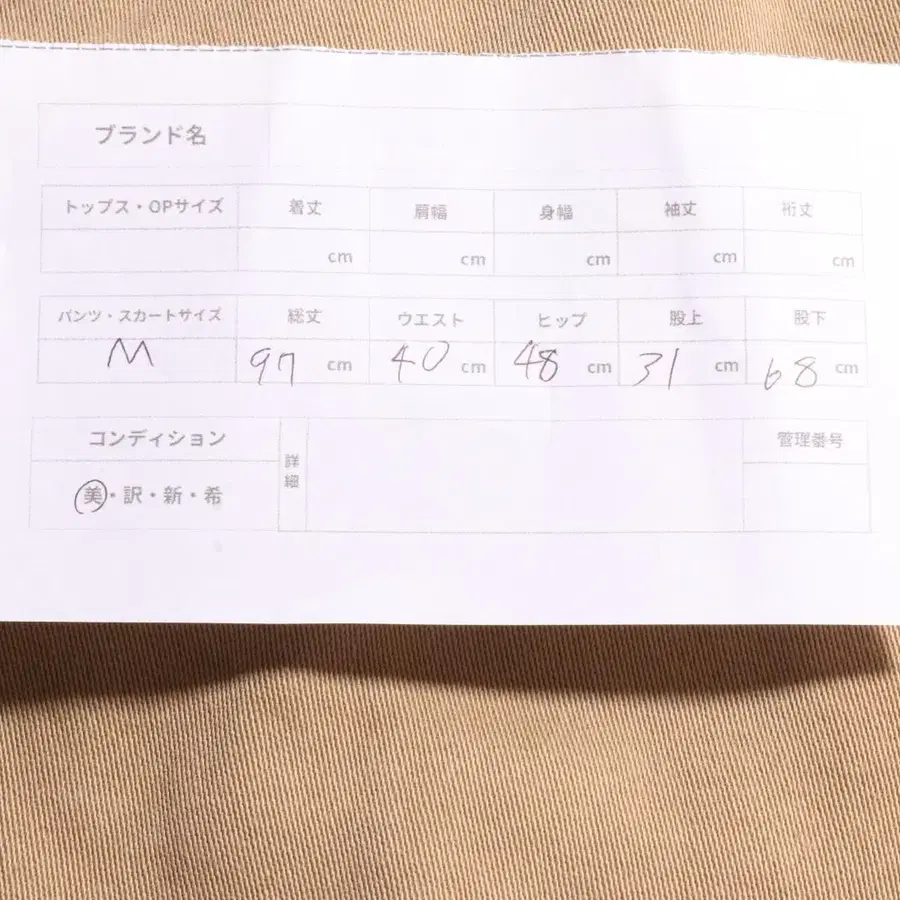 ブランド名
トップス・OPサイズ 着丈 肩幅 身幅 袖丈 裄丈
cm cm cm cm cm
パンツ・スカートサイズ 総丈 ウエスト ヒップ 股上 股下
M 97 cm 40 cm 48 cm 31 cm 68 cm
コンディション 詳細 管理番号
美・訳・新・希